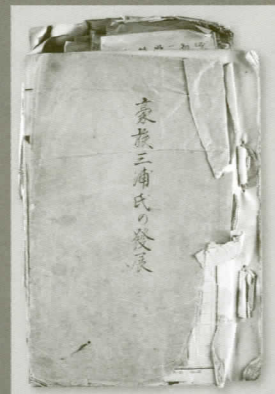 豪族三浦氏の發展